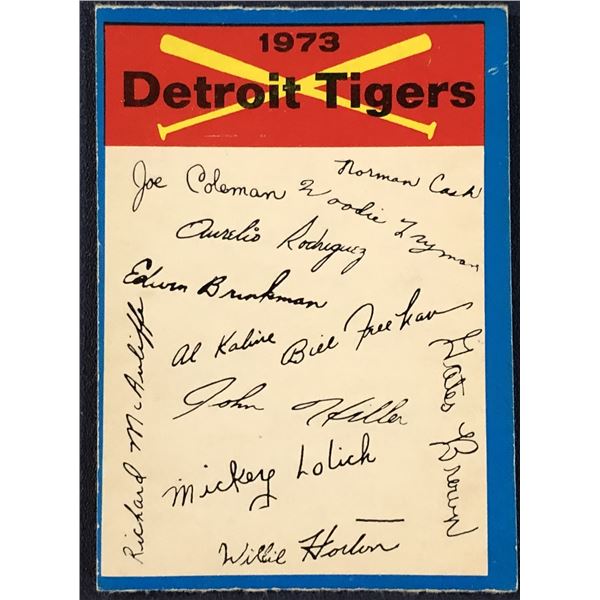 1973
Detroit Tigers
Joe Coleman
Norman Cash
Woodie Fryman
Aurelio Rodriguez
Edwin Brinkman
Al Kaline
Bill Freehan
Gates Brown
Richard McAuliffe
John Hiller
Mickey Lolich
Willie Horton